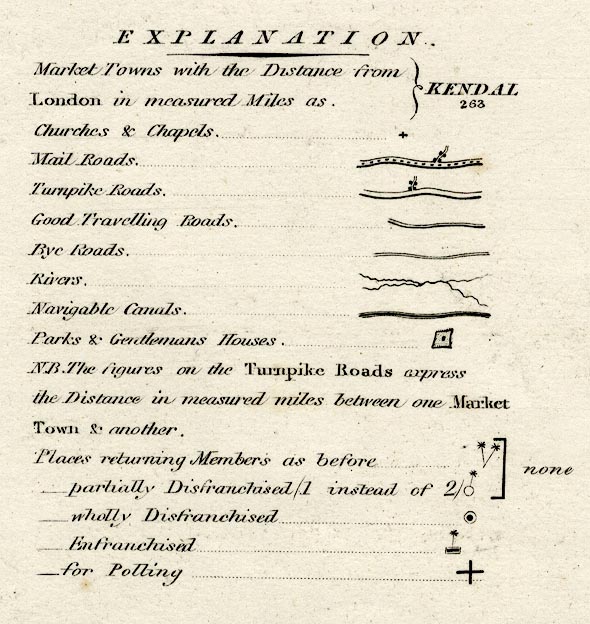 EXPLANATION.
Market Towns with the Distance from
London in measured Miles as.
KENDAL
263
Churches & Chapels.
Mail Roads.
Turnpike Roads.
Good Travelling Roads.
Bye Roads.
Rivers.
Navigable Canals.
Parks & Gentlemans Houses.
N.B. The figures on the Turnpike Roads express
the Distance in measured miles between one Market
Town & another.
Places returning Members as before
partially Disfranchised /1 instead of 2/
none
wholly Disfranchised
Enfranchised
for Polling